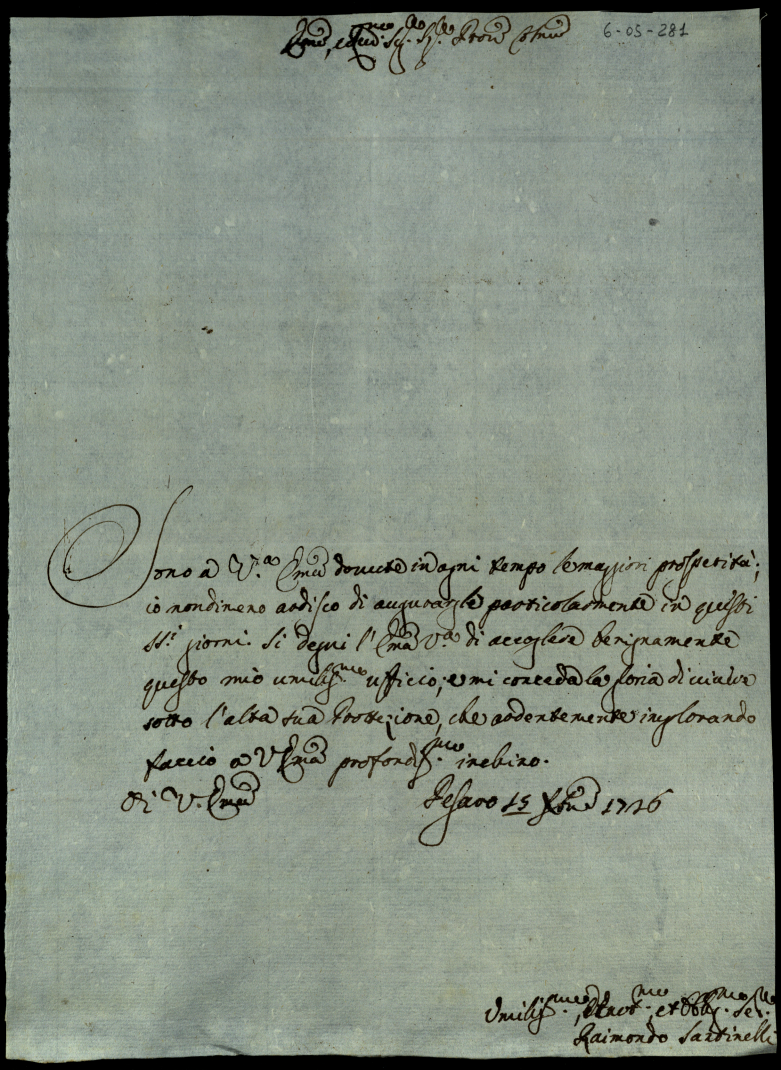 Em̃o, e Rev.mo Sig.re Sig.re Pron̄e Colm̃o
6-05-281
Sono a V.ra Em̃a dovute in ogni tempo le maggiori prosperità;
io nondimeno ardisco di augurargle particolarmente in questi
SS.i giorni. Si degni l'Em̃a V.ra di accoglere benignamente
questo mio umilis.mo ufficio; e mi conceda la gloria di vivere
sotto l'alta sua Protezione, che ardentemente implorando
faccio a V Em̃a profondiss.mo inchino.
Di V. Em̃a
Pesaro 15 Xbre 1726
Umiliss.mo, Devot.mo, et Obb.mo Se.re
Raimondo Santinelli